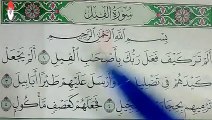 سُورَةُ الْفِيلِ
بِسْمِ اللَّهِ الرَّحْمَٰنِ الرَّحِيمِ
أَلَمْ تَرَ كَيْفَ فَعَلَ رَبُّكَ بِأَصْحَٰبِ الْفِيلِ ۝ أَلَمْ يَجْعَلْ
كَيْدَهُمْ فِي تَضْلِيلٍ ۝ وَأَرْسَلَ عَلَيْهِمْ طَيْرًا أَبَابِيلَ ۝
تَرْمِيهِم سِجِّيلٍ ۝ فَجَعَلَهُمْ كَعَصْفٍ مَّأْكُولٍ ۝